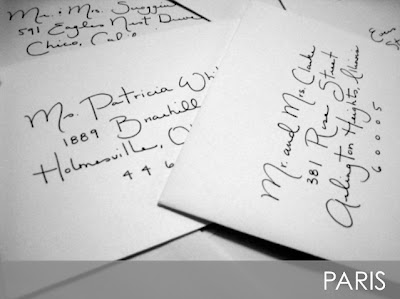 Mr. & Mrs.
591 Eagles Nest Drive
Chico,
Ms. Patricia Whi
1889
Holmesville, O
446
Mr. and Mrs. Clarke
381 Rose Street
Arlington Heights, Illinois
60005
PARIS